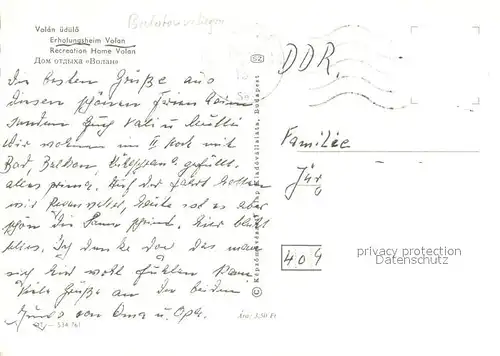 Balatonvilágos
Volán üdülő
Erholungsheim Volan
Recreation Home Volan
Дом отдыха «Волан»
Die besten Grüße aus
diesem schönen Ferienheim
senden Euch Vati u. Mutti
Wir wohnen im II Stock mit
Bad, Balkon,
alles prima. Auf der Fahrt hatten
wir Regenwetter, heute hat es aber
schön die Sonne scheint. Hier blüht
alles. Ich denke das man
sich hier wohl fühlen kann.
Viele Grüße an die beiden
von Oma u. Opa.
534 761
Ára: 3,50 Ft
© Képzőművészeti Alap Kiadóvállalata, Budapest
SZ
DDR.
Familie
Jürg
404
privacy protection
Datenschutz